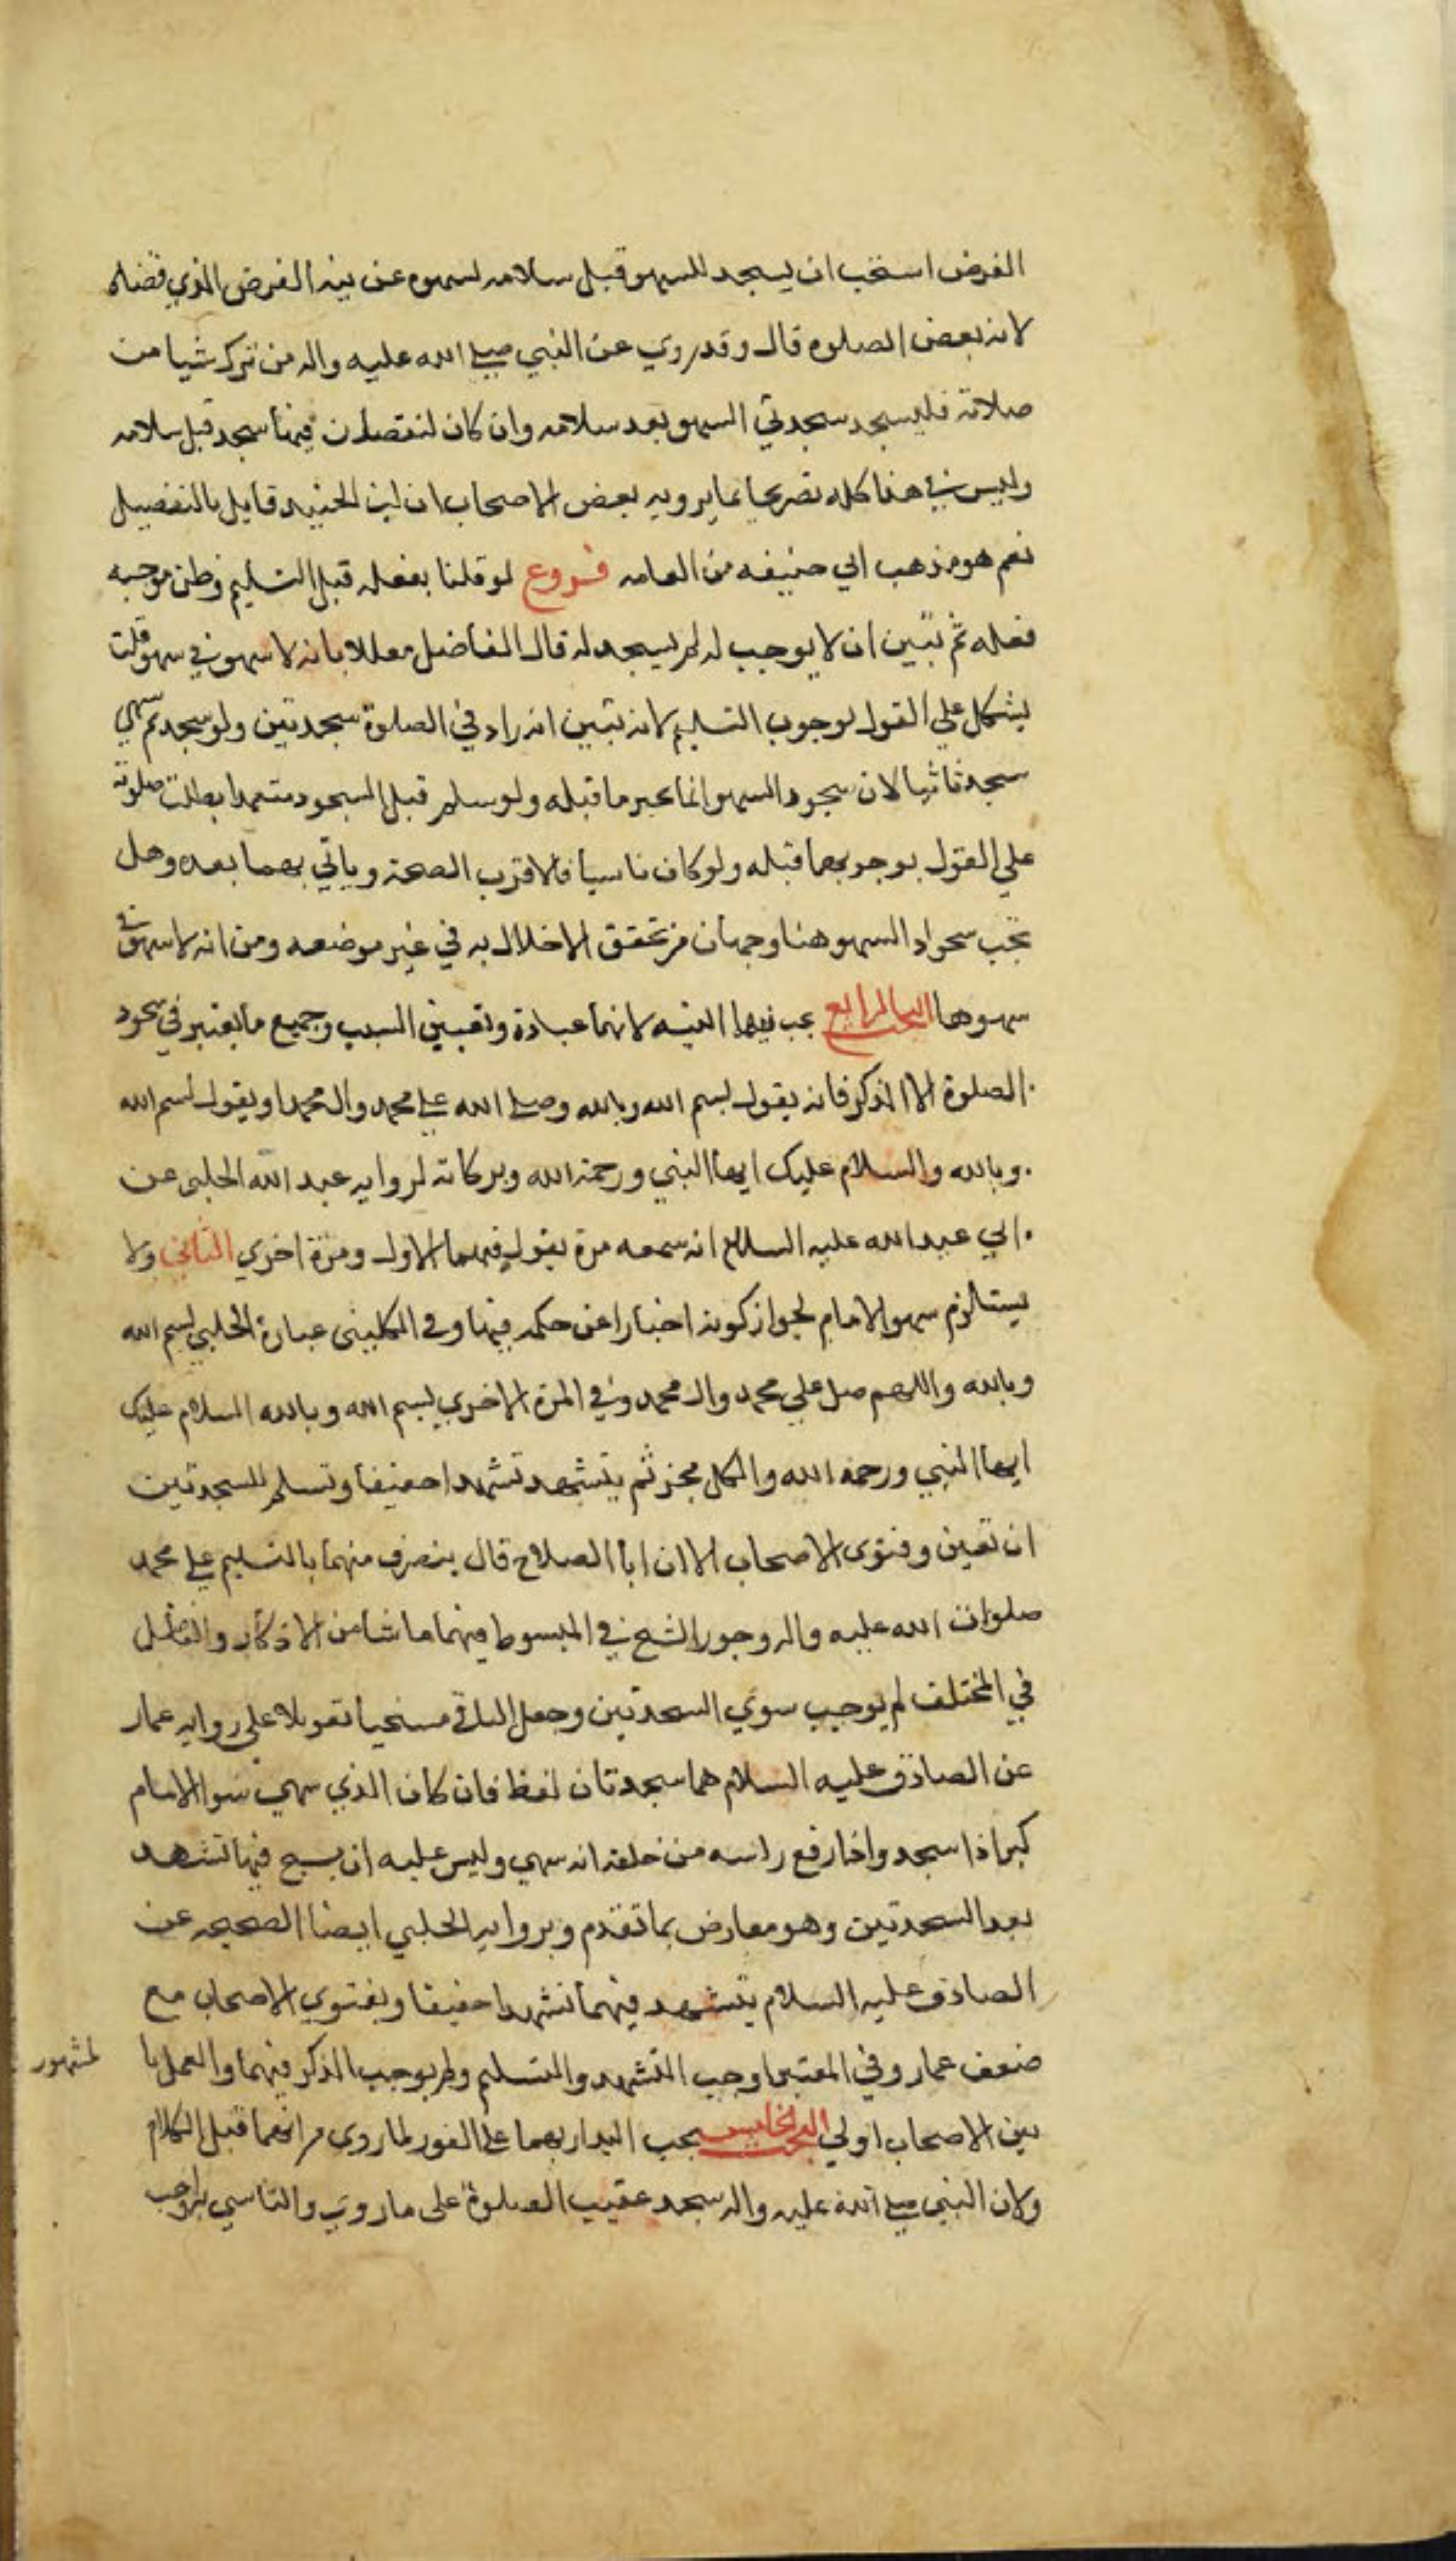 الفرض استحب ان يسجد للسهو قبل سلامه لسهوه عن نيه الفرض الذي قضاه
لانه بعض الصلوه قال وقد روي عن النبي صلى الله عليه واله من ترك شيا من
صلاته فليسجد سجدتي السهو بعد سلامه وان كان لنقصان فيها سجد قبل سلامه
وليس في هذا كله تصريحا بما يرويه بعض الاصحاب ان ابن الجنيد قايل بالتفصيل
نعم هو مذهب ابي حنيفه من العامه فروع لو قلنا بفعله قبل التسليم وظن موجبه
فعله ثم تبين ان لا يوجب له لم يسجد له قال الفاضل معللا بانه لا سهو في سهو قلت
يشكل علي القول بوجوب التسليم لانه تبين انه زاد في الصلوة سجدتين ولو سجد ثم سهي
سجد ثانيا لان سجود السهو انما يجبر ما قبله ولو سلم قبل السجود متعمدا بطلت صلوته
علي القول بوجوبهما قبله ولو كان ناسيا فالاقرب الصحة وياتي بهما بعده وهل
تجب سجود السهو هنا وجهان من تحقق الاخلال به في غير موضعه ومن انه لا سهو في
سهوها البحث الرابع يجب فيهما النيه لانهما عبادة وتعيين السبب وجميع ما يعتبر في سجود
الصلوة الا الذكر فانه يقول بسم الله وبالله وصلى الله على محمد وال محمد او يقول بسم الله
وبالله والسلام عليك ايها النبي ورحمة الله وبركاته لروايه عبد الله الحلبي عن
ابي عبد الله عليه السلام انه سمعه مرة يقول فيهما الاول ومرة اخري الثاني ولا
يستلزم سهو الامام لجواز كونه اخبارا عن حكمه فيها وفي الكليني عبارة الحلبي بسم الله
وبالله واللهم صل علي محمد وال محمد وفي المرة الاخري بسم الله وبالله السلام عليك
ايها النبي ورحمه الله والكل مجز ثم يتشهد تشهدا خفيفا وتسلم للسجدتين
ان تعين وفتوى الاصحاب الا ان ابا الصلاح قال ينصرف منهما بالتسليم على محمد
صلوات الله عليه واله وجوز الشيخ في المبسوط فيهما ما شا من الاذكار والفاضل
في المختلف لم يوجب سوي السجدتين وجعل الباقي مستحبا تعويلا علي روايه عمار
عن الصادق عليه السلام هما سجدتان فقط فان كان الذي سهي سوا الامام
كبر اذا سجد واذا رفع راسه من خلفه انه سهي وليس عليه ان يسبح فيها تشهد
بعد السجدتين وهو معارض بما تقدم وبروايه الحلبي ايضا الصحيحه عن
الصادق عليه السلام يتشهد فيهما تشهدا خفيفا وبفتوي الاصحاب مع
ضعف عمار وفي المعتبر اوجب التشهد والتسليم ولم يوجب الذكر فيهما والعمل با لمشهور
بين الاصحاب اولي البحث الخامس يجب البدار بهما على الفور لما روي من انهما قبل الكلام
ولان النبي صلى الله عليه واله سجد عقيب الصلوة على ما روي والتاسي به واجب